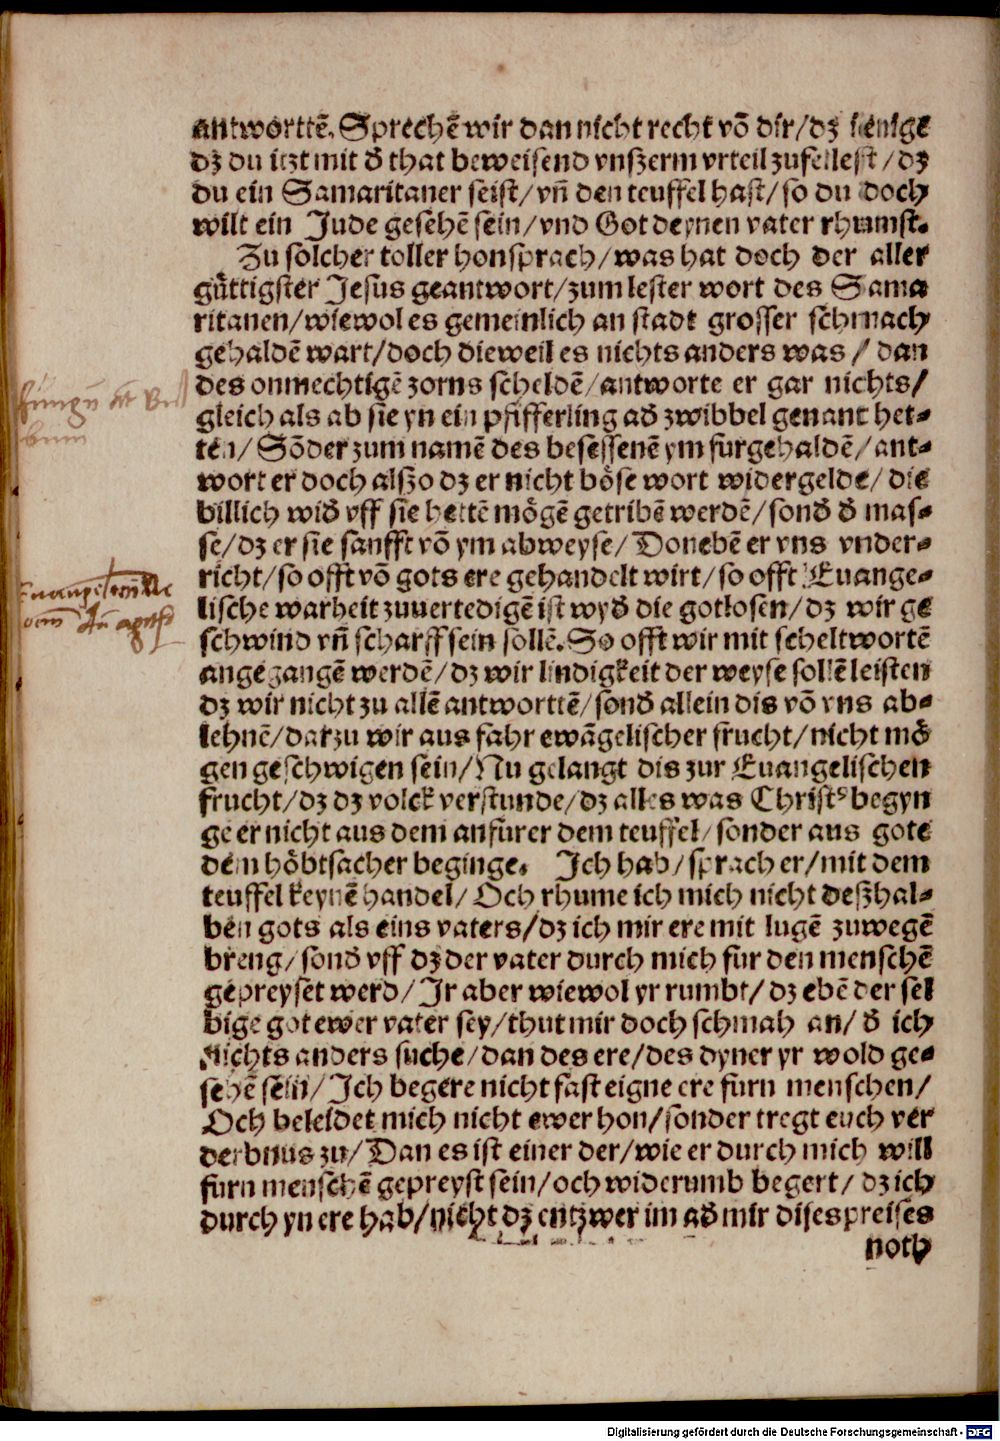 antwortē. Sprechē wir dan nicht recht vō dir/dz ihenige
dz du itzt mit đ that beweisend vnszerm vrteil zufellest/dz
du ein Samaritaner seist/vn̄ den teuffel hast/so du doch
wilt ein Jude gesehē sein/vnd Got deynen vater rhumst.
Zu solcher toller honsprach/was hat doch der aller
gůttigster Jesus geantwort/zum lester wort des Sama
ritanen/wiewol es gemeinlich an stadt grosser schmach
gehaldē wart/doch dieweil es nichts anders was/ dan
des onmechtigē zorns scheldē/antworte er gar nichts/
gleich als ab sie yn ein pfifferling ađ zwibbel genant het-
ten/ Sōder zum namē des besessenē ym furgehaldē/ant-
wort er doch alszo dz er nicht böse wort widergelde/die
billich wiđ vff sie hettē mögē getribē werdē/sonđ đ mas-
se/dz er sie sanfft vō ym abweyse/Donebē er vns vnder-
richt/so offt vō gots ere gehandelt wirt/so offt Euange-
lische warheit zuuertedigē ist wyđ die gotlosen/dz wir ge
schwind vn̄ scharff sein sollē. So offt wir mit scheltwortē
angegangē werdē/dz wir lindigkeit der weyse sollē leisten
dz wir nicht zu allē antworttē/sonđ allein dis vō vns ab-
lehnē/darzu wir aus fahr ewāgelischer frucht/nicht mö
gen geschwigen sein/Nu gelangt dis zur Euangelischen
frucht/dz dz volck verstunde/dz alles was Christꝰ begyn
ge er nicht aus dem anfürer dem teuffel/sonder aus gote
dem höbtsacher beginge. Ich hab/sprach er/mit dem
teuffel keynē handel/Och rhume ich mich nicht deszhal-
ben gots als eins vaters/dz ich mir ere mit lugē zuwegē
breng/sonđ vff dz der vater durch mich für den menschē
gepreyset werd/Jr aber wiewol yr rumbt/dz ebē der sel
bige got ewer vater sey/thut mir doch schmah an/đ ich
Nichts anders suche/dan des ere/des dyner yr wold ge-
sehē sein/Ich begere nicht fast eigne ere furn menschen/
Och beleidet mich nicht ewer hon/sonder tregt euch ver
derbnus zu/Dan es ist einer der/wie er durch mich will
furn menschē gepreyst sein/och widerumb begert/dz ich
durch yn ere hab/nicht dz entzwer im ađ mir dises preises
noth
Digitalisierung gefördert durch die Deutsche Forschungsgemeinschaft - DFG